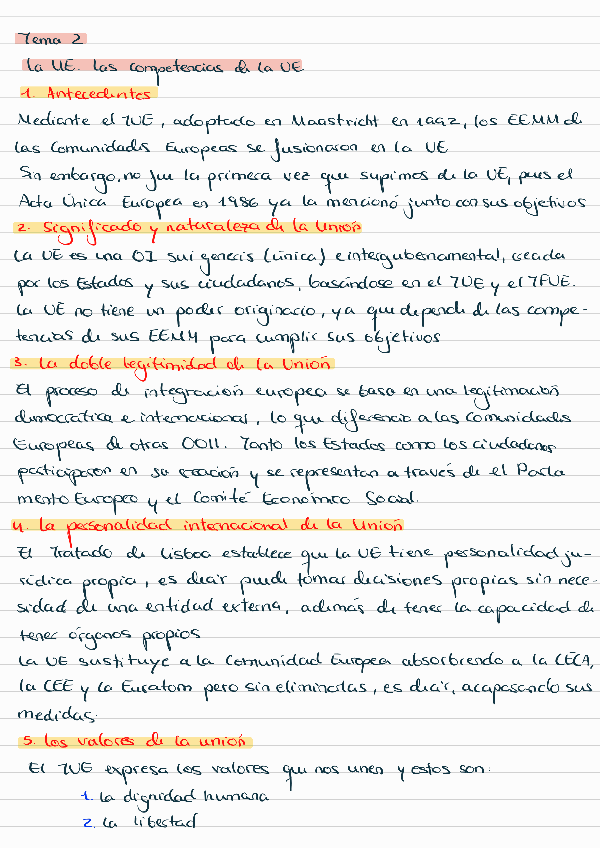 Tema 2
La UE. Las competencias de la UE
1. Antecedentes
Mediante el TUE, adoptado en Maastricht en 1992, los EEMM de
las Comunidades Europeas se fusionaron en la UE
Sin embargo, no fue la primera vez que supimos de la UE, pues el
Acta Única Europea en 1986 ya la mencionó junto con sus objetivos
2. Significado y naturaleza de la Unión
La UE es una OI sui generis (única) e intergubernamental, creada
por los Estados y sus ciudadanos, basándose en el TUE y el TFUE.
La UE no tiene un poder originario, ya que depende de las compe-
tencias de sus EEMM para cumplir sus objetivos
3. La doble legitimidad de la Unión
El proceso de integración europea se basa en una legitimación
democrática e internacional, lo que diferencia a las Comunidades
Europeas de otras OOII. Tanto los Estados como los ciudadanos
participaron en su creación y se representan a través de el Parla
mento Europeo y el Comité Económico Social.
4. La personalidad internacional de la Unión
El Tratado de Lisboa establece que la UE tiene personalidad ju-
rídica propia, es decir puede tomar decisiones propias sin nece-
sidad de una entidad externa, además de tener la capacidad de
tener órganos propios
La UE sustituye a la Comunidad Europea absorbiendo a la CECA,
la CEE y la Euratom pero sin eliminarlas, es decir, acaparando sus
medidas.
5. Los valores de la unión
El TUE expresa los valores que nos unen y estos son:
1. La dignidad humana
2. La libertad